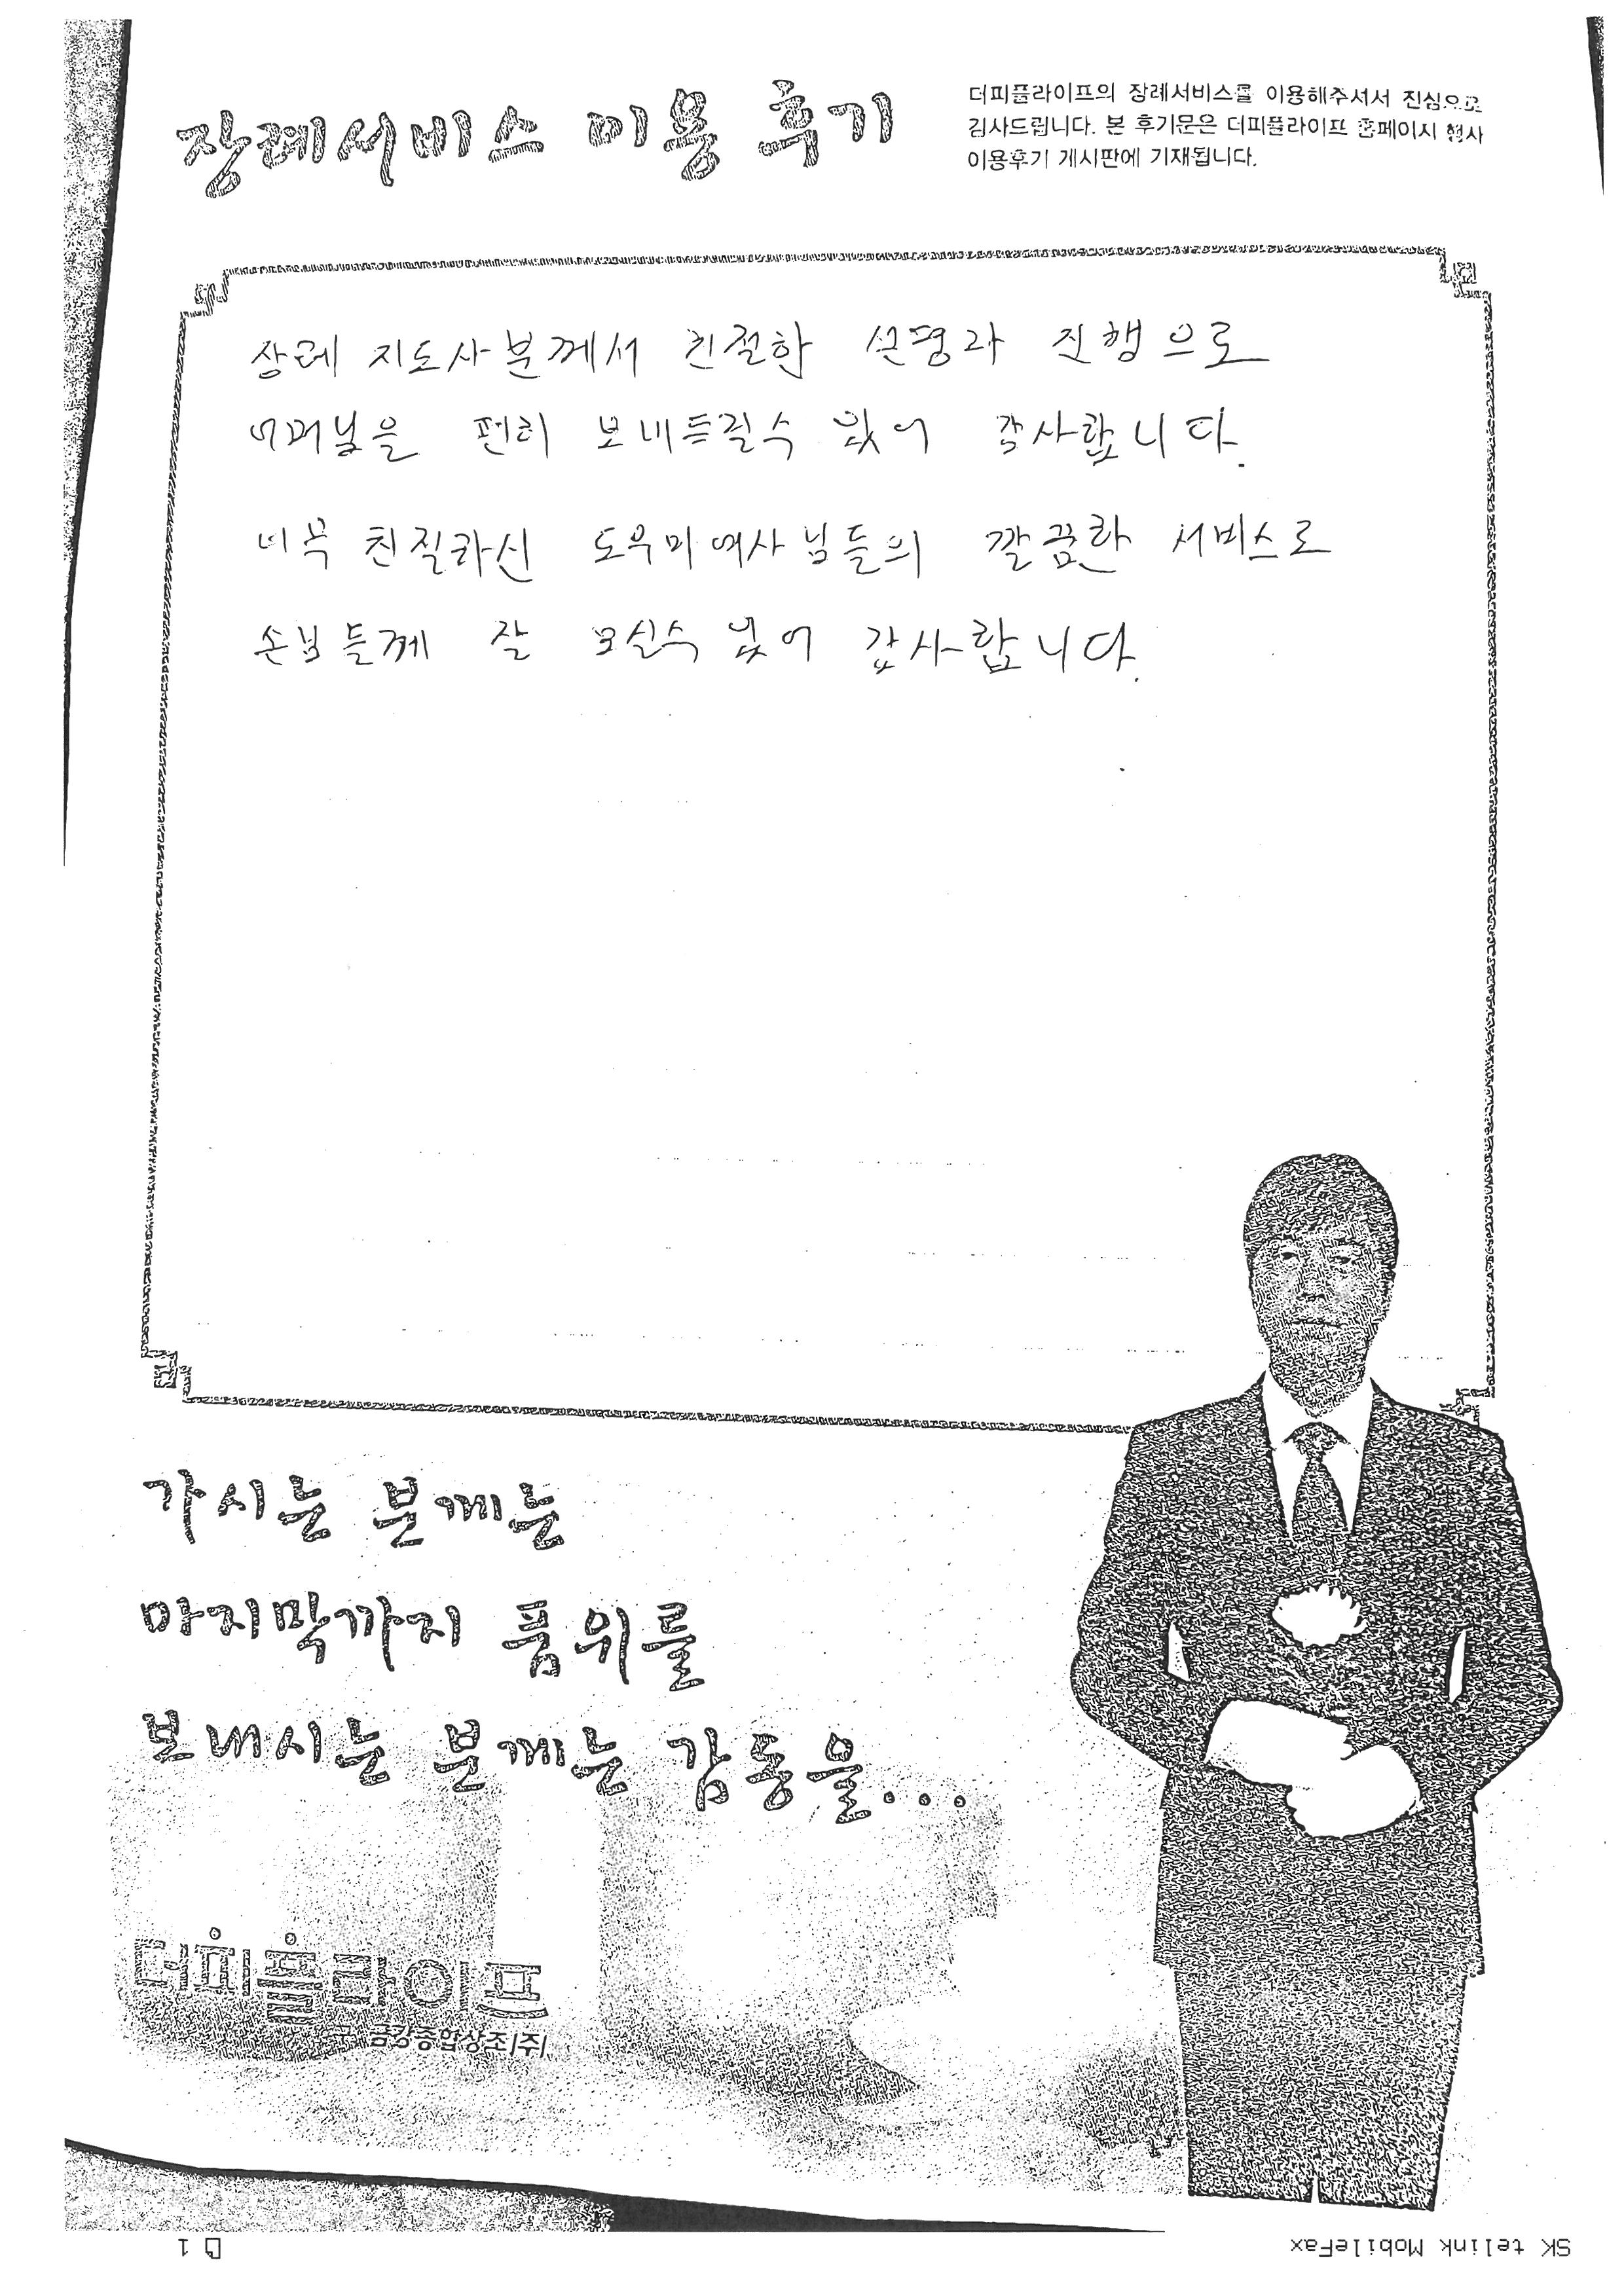 장례서비스 이용 후기
더피플라이프의 장례서비스를 이용해주셔서 진심으로
감사드립니다. 본 후기문은 더피플라이프 홈페이지 행사
이용후기 게시판에 기재됩니다.
장례 지도사분께서 친절한 설명과 진행으로
어머님을 편히 보내드릴수 있어 감사합니다.
너무 친절하신 도우미여사님들의 깔끔한 서비스로
손님들께 잘 모실수 있어 감사합니다.
가시는 분께는
마지막까지 품위를
보내시는 분께는 감동을...
더피플라이프
구 금강종합상조(주)
SK telink MobileFax
1